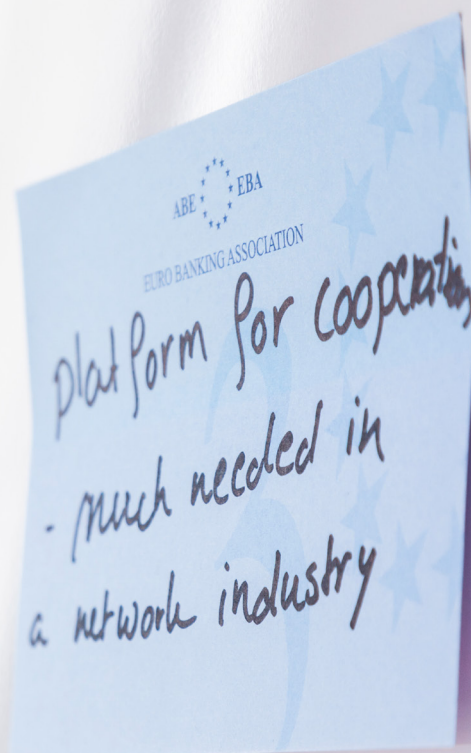 ABE EBA
EURO BANKING ASSOCIATION
platform for cooperation
- much needed in
a network industry